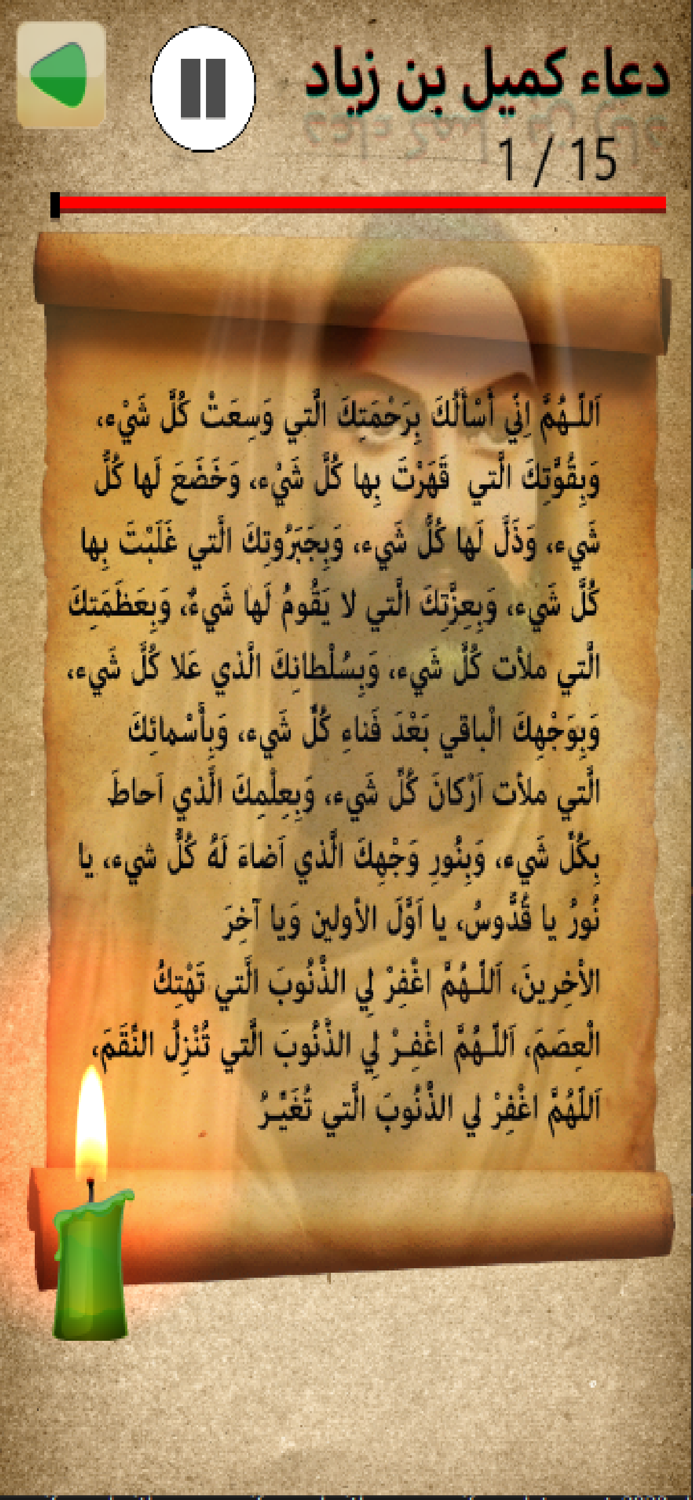 دعاء كميل بن زياد
1 / 15
اَللّـهُمَّ اِنّي أَسْأَلُكَ بِرَحْمَتِكَ الَّتي وَسِعَتْ كُلَّ شَيْء،
وَبِقُوَّتِكَ الَّتي قَهَرْتَ بِها كُلَّ شَيْء، وَخَضَعَ لَها كُلُّ
شَيء، وَذَلَّ لَها كُلُّ شَيء، وَبِجَبَرُوتِكَ الَّتي غَلَبْتَ بِها
كُلَّ شَيء، وَبِعِزَّتِكَ الَّتي لا يَقُومُ لَها شَيءٌ، وَبِعَظَمَتِكَ
الَّتي ملأت كُلَّ شَيء، وَبِسُلْطانِكَ الَّذي عَلا كُلَّ شَيء،
وَبِوَجْهِكَ الْباقي بَعْدَ فَناءِ كُلِّ شَيء، وَبِأَسْمائِكَ
الَّتي ملأت اَرْكانَ كُلِّ شَيء، وَبِعِلْمِكَ الَّذي اَحاطَ
بِكُلِّ شَيء، وَبِنُورِ وَجْهِكَ الَّذي اَضاءَ لَهُ كُلُّ شيء، يا
نُورُ يا قُدُّوسُ، يا اَوَّلَ الأولين وَيا آخِرَ
الأخِرينَ، اَللّـهُمَّ اغْفِرْ لِي الذُّنُوبَ الَّتي تَهْتِكُ
الْعِصَمَ، اَللّـهُمَّ اغْفِـرْ لِي الذُّنُوبَ الَّتي تُنْزِلُ النِّقَمَ،
اَللّهُمَّ اغْفِرْ لي الذُّنُوبَ الَّتي تُغَيِّـرُ